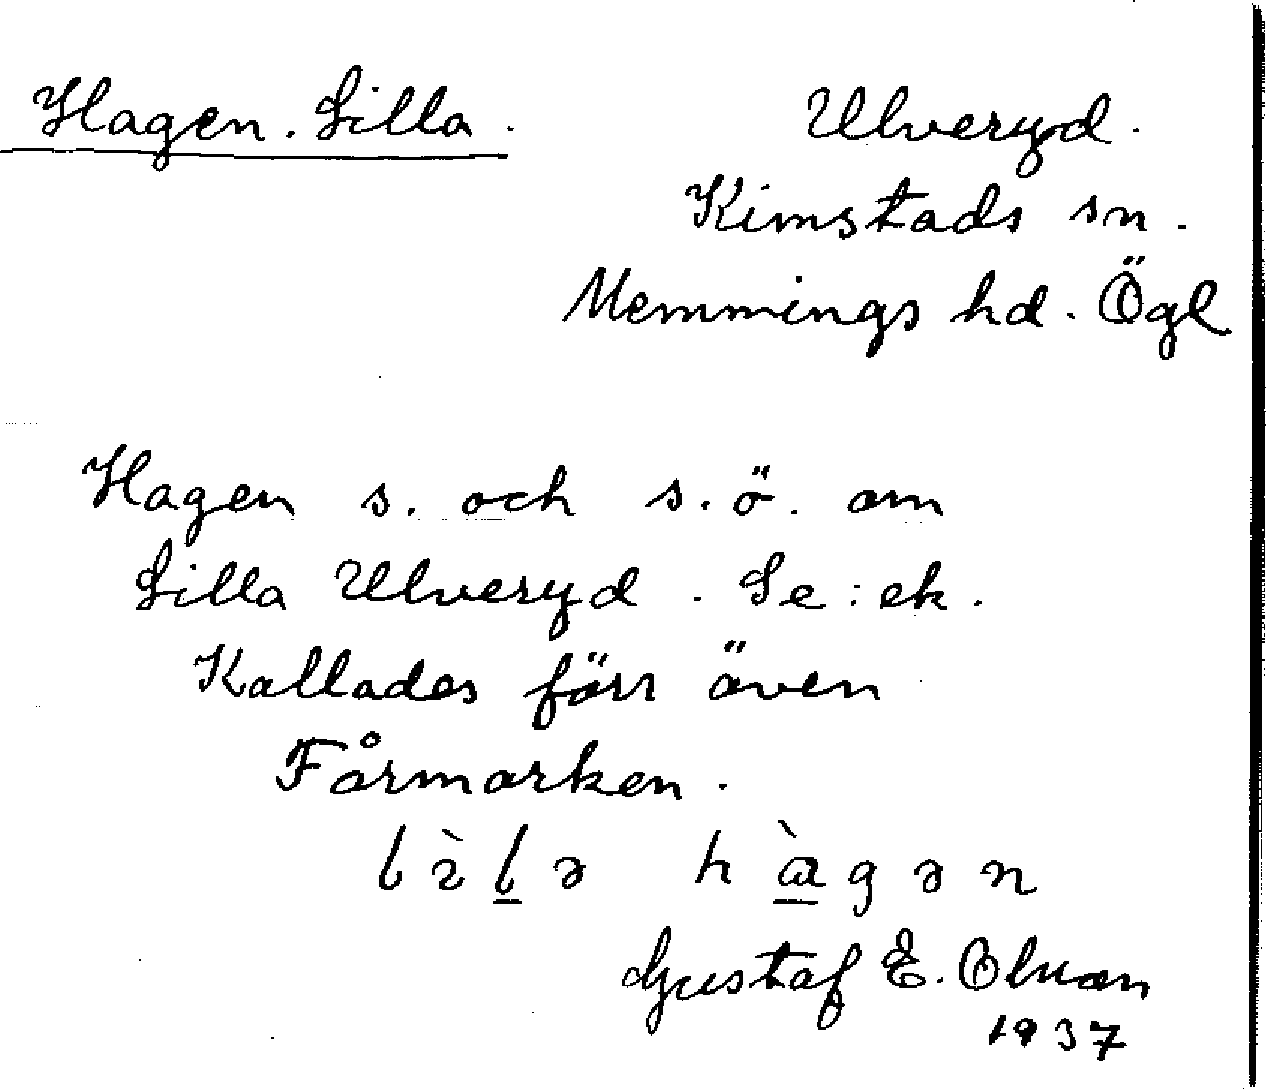 Hagen. Lilla. Ulveryd.
Kimstads sn.
Memmings hd. Ögl
Hagen s. och s.ö. om
Lilla Ulveryd. Se: ek.
Kallades förr även
Fårmarken.
hagən
Gustaf E. Olsson
1937